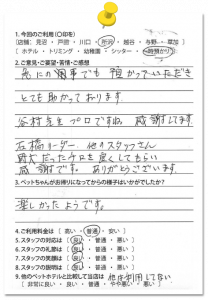 1.今回のご利用(○印を)
(店舗: 見沼 ・ 戸田 ・ 川口 ・ 所沢 ・ 越谷 ・ 与野 ・ 草加)
(ホテル ・ トリミング ・ 幼稚園 ・ シッター ・ 一時預かり)
2.ご意見・ご要望・苦情・ご感想
急にの用事でも 預かっていただき
とても助かっております。
谷村先生 プロですね 感謝してます。
石橋リーダー、他のスタッフさん
だった を直してもらい
感謝です。ありがとうございます。
3.ペットちゃんがお帰りになってからの様子はいかがでしたか?
楽しかったようです。
4.ご利用料金は ( 高い ・ 普通 ・ 安い )
5.スタッフの対応は ( 良い ・ 普通 ・ 悪い )
6.スタッフの礼儀は ( 良い ・ 普通 ・ 悪い )
7.スタッフの笑顔は ( 良い ・ 普通 ・ 悪い )
8.スタッフの説明は ( 良い ・ 普通 ・ 悪い )
9.他のペットホテルと比較して当店は 他は利用してない
( 非常に良い ・ 良い ・ 普通 ・ やや悪い ・ 悪い )